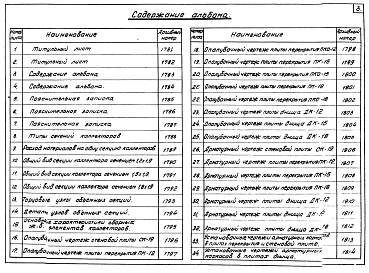 Содержание альбома.
3.
Номер листа Наименование Архивный номер
1 Титульный лист 1781
2 Титульный лист 1782
3 Содержание альбома 1783
4 Содержание альбома. 1784
5 Пояснительная записка 1785
6 Пояснительная записка. 1786
7 Пояснительная записка 1787
8 Типы сечений коллекторов 1788
9 Расход материалов на одну секцию коллектора 1789
10 Общий вид секции коллектора сечением 1790
11 Общий вид секции коллектора сечением 1791
12 Общий вид секции коллектора сечением 1792
13 Торцовые узлы объемных секций. 1793
14 Детали узлов объемных секций. 1794
15 Основные характеристики сборных ж.б. элементов коллекторов. 1795
16 Опалубочный чертеж стеновой плиты СК-18 1796
17 Опалубочный чертеж плиты перекрытия ПК-12 1797
Номер листа Наименование Архивный номер
18 Опалубочный чертеж плиты перекрытия ПКО-12 1798
19 Опалубочный чертеж плиты перекрытия ПК-15 1799
20 Опалубочный чертеж плиты перекрытия ПКО-15 1800
21 Опалубочный чертеж плиты перекрытия ПК-18 1801
22 Опалубочный чертеж плиты перекрытия ПКО-18 1802
23 Опалубочный чертеж плиты днища ДК-12 1803
24 Опалубочный чертеж плиты днища ДК-15 1804
25 Опалубочный чертеж плиты днища ДК-18 1805
26 Арматурный чертеж стеновой плиты СК-18 1806
27 Арматурный чертеж плиты перекрытия ПК-12 1807
28 Арматурный чертеж плиты перекрытия ПК-15 1808
29 Арматурный чертеж плиты перекрытия ПК-18 1809
30 Арматурный чертеж плиты днища ДК-12 1810
31 Арматурный чертеж плиты днища ДК-15 1811
32 Арматурный чертеж плиты днища ДК-18 1812
33 Установочные чертежи арматурных каркасов в плитах перекрытия и стеновой плите. 1813
34 Установочные чертежи арматурных каркасов в плитах днища. 1814